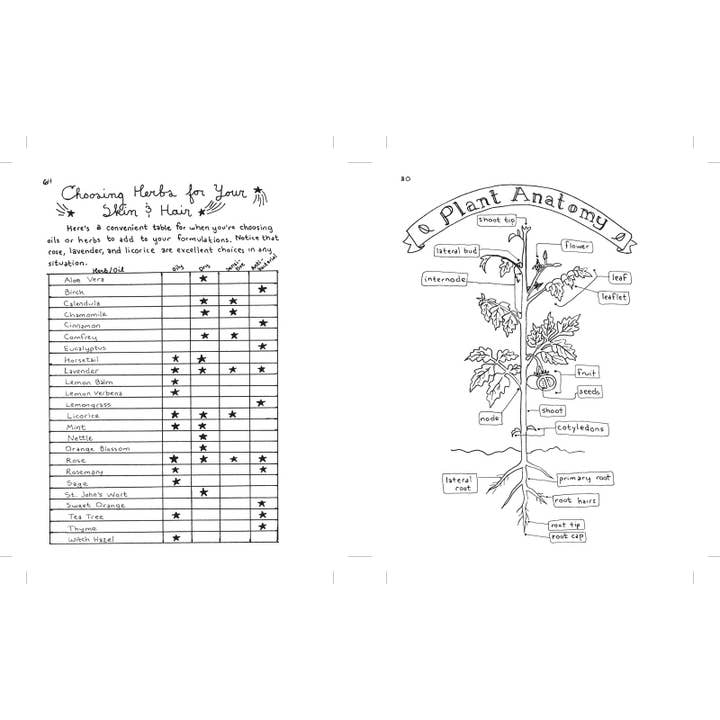 64
Choosing Herbs for Your
Skin & Hair
Here's a convenient table for when you're choosing
oils or herbs to add to your formulations. Notice that
rose, lavender, and licorice are excellent choices in any
situation.
Herb/Oil Oily Dry Sensitive Anti-bacterial
Aloe Vera ★
Birch ★
Calendula ★ ★
Chamomile ★ ★
Cinnamon ★
Comfrey ★ ★
Eucalyptus ★
Horsetail ★ ★
Lavender ★ ★ ★ ★
Lemon Balm ★
Lemon Verbena ★
Lemongrass ★
Licorice ★ ★ ★
Mint ★ ★
Nettle ★
Orange Blossom ★
Rose ★ ★ ★ ★
Rosemary ★ ★
Sage ★
St. John's Wort ★
Sweet Orange ★
Tea Tree ★ ★
Thyme ★
Witch Hazel ★
30
Plant Anatomy
shoot tip
lateral bud
flower
internode
leaf
leaflet
fruit
seeds
node
shoot
cotyledons
lateral
root
primary root
root hairs
root tip
root cap